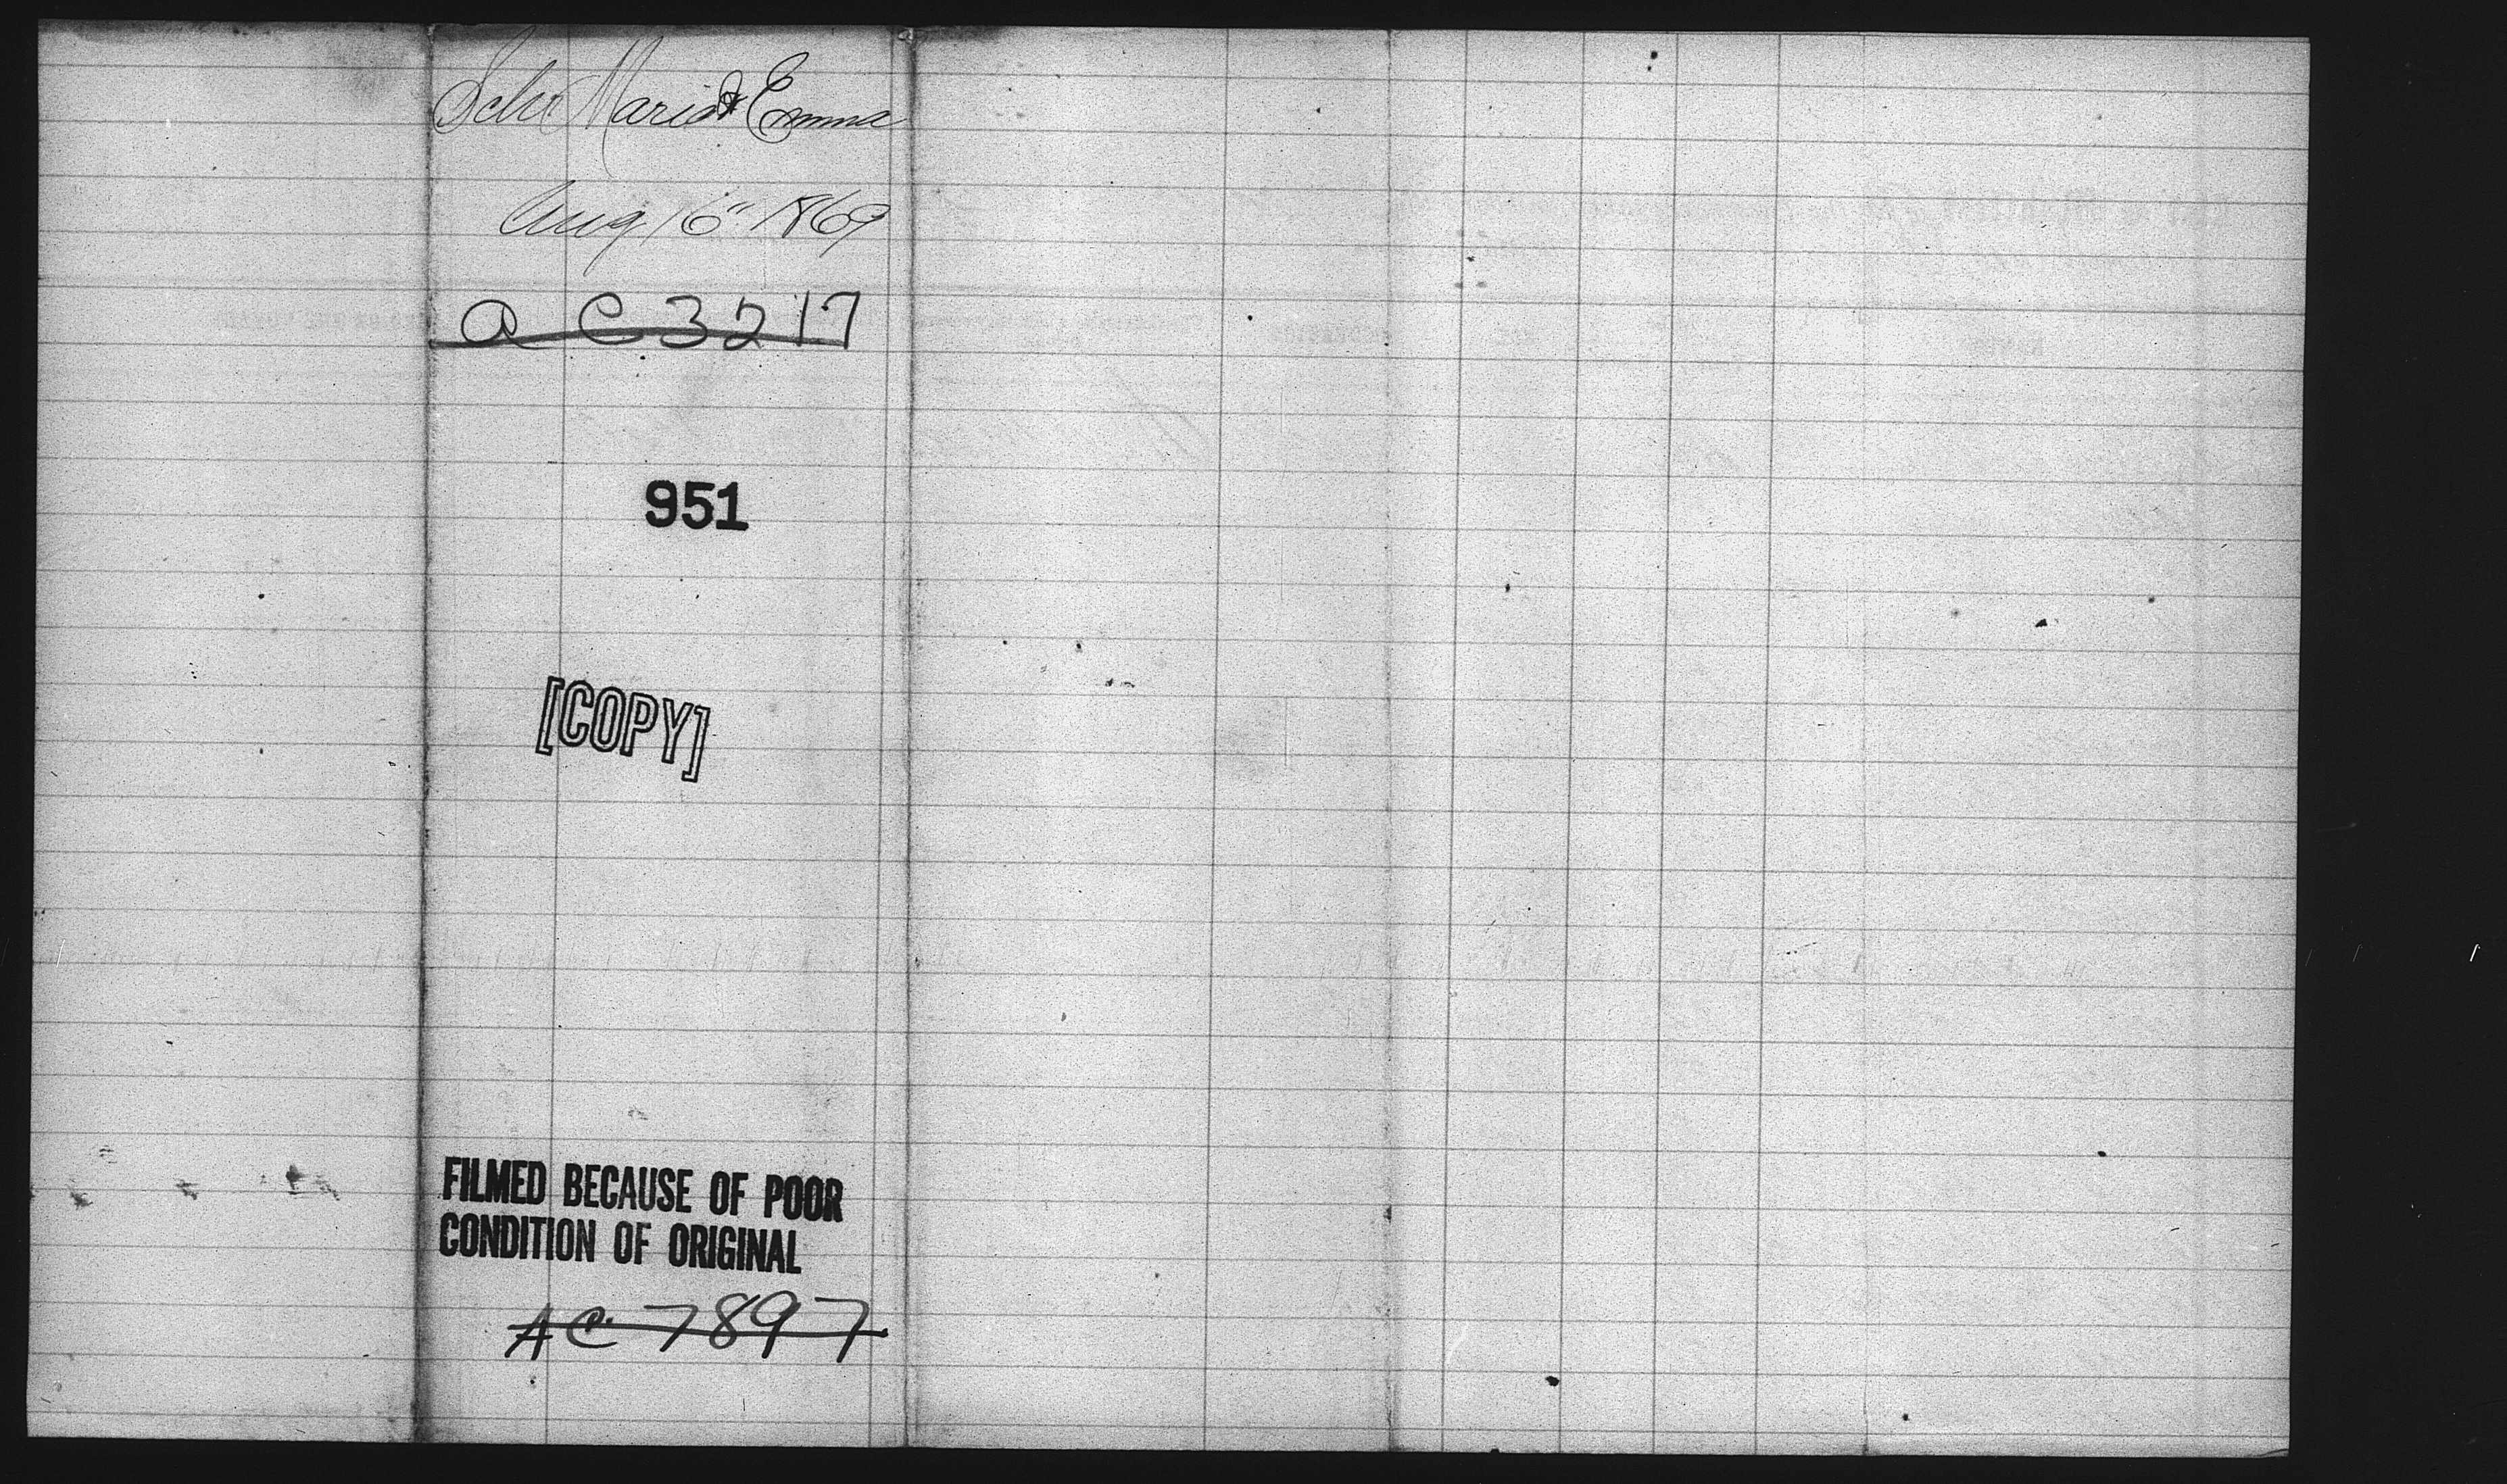 Schr Maria & Emma
Aug 16" 1869
a C 3217
951
[COPY]
FILMED BECAUSE OF POOR
CONDITION OF ORIGINAL
AC 7897